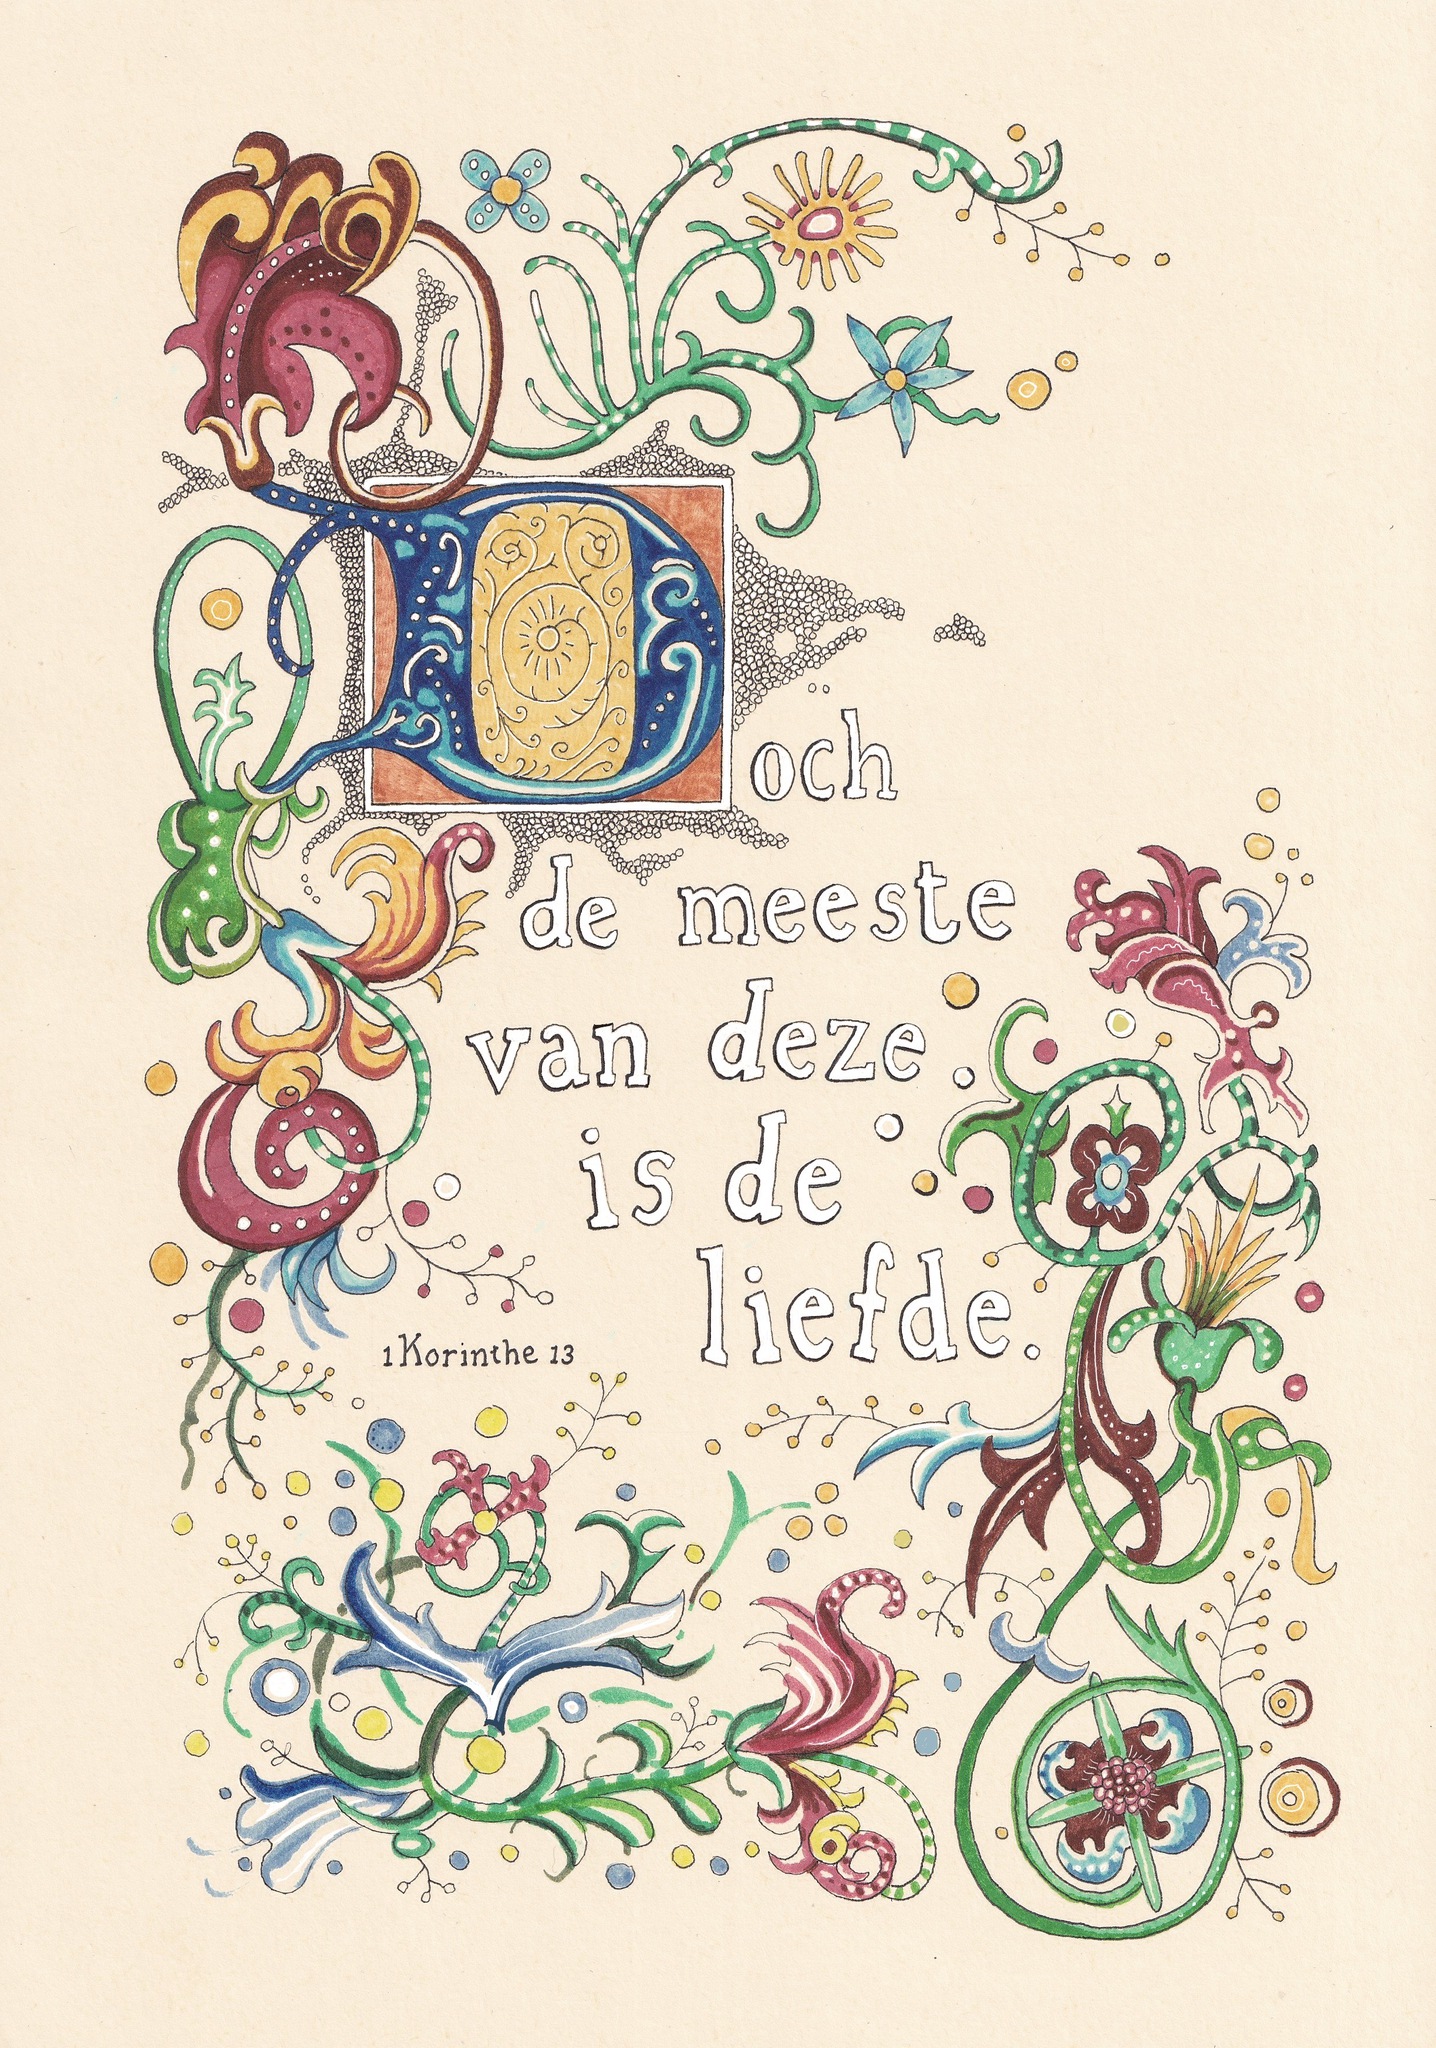 Doch
de meeste
van deze
is de
liefde.
1 Korinthe 13